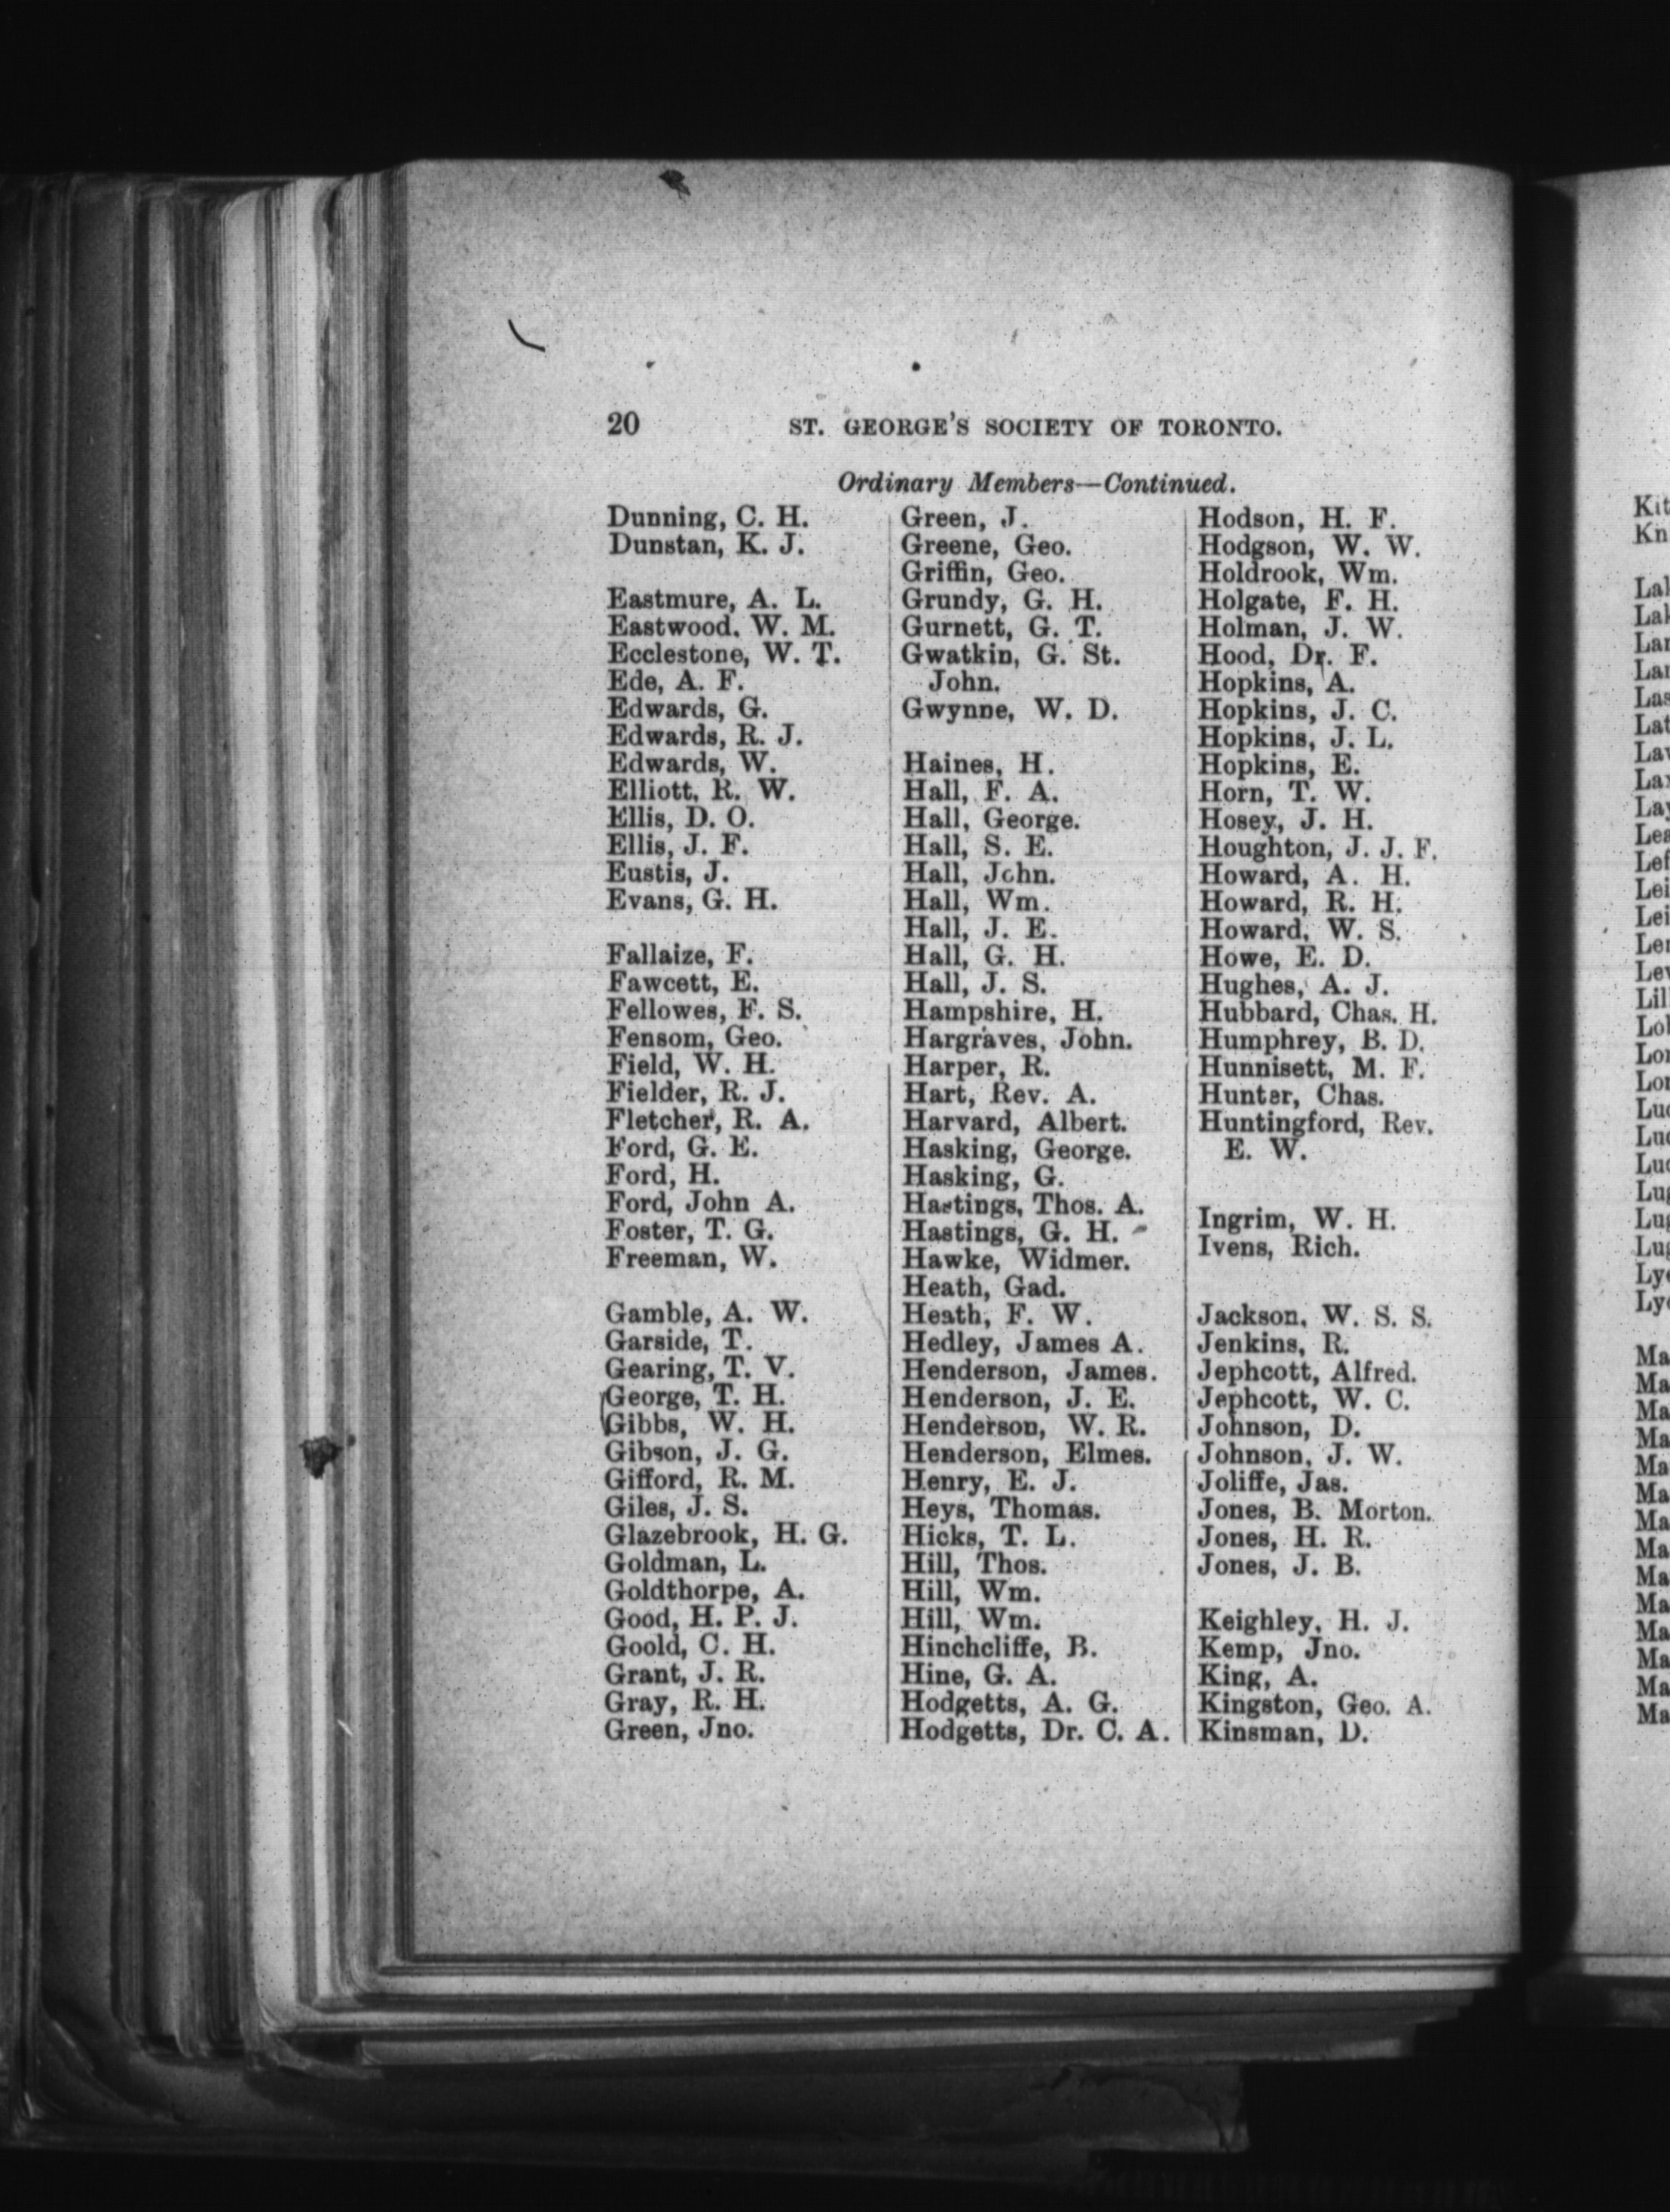 20 ST. GEORGE'S SOCIETY OF TORONTO.
Ordinary Members—Continued.
Dunning, C. H.
Dunstan, K. J.
Eastmure, A. L.
Eastwood. W. M.
Ecclestone, W. T.
Ede, A. F.
Edwards, G.
Edwards, R. J.
Edwards, W.
Elliott, R. W.
Ellis, D. O.
Ellis, J. F.
Eustis, J.
Evans, G. H.
Fallaize, F.
Fawcett, E.
Fellowes, F. S.
Fensom, Geo.
Field, W. H.
Fielder, R. J.
Fletcher, R. A.
Ford, G. E.
Ford, H.
Ford, John A.
Foster, T. G.
Freeman, W.
Gamble, A. W.
Garside, T.
Gearing, T. V.
George, T. H.
Gibbs, W. H.
Gibson, J. G.
Gifford, R. M.
Giles, J. S.
Glazebrook, H. G.
Goldman, L.
Goldthorpe, A.
Good, H. P. J.
Goold, C. H.
Grant, J. R.
Gray, R. H.
Green, Jno.
Green, J.
Greene, Geo.
Griffin, Geo.
Grundy, G. H.
Gurnett, G. T.
Gwatkin, G. St.
John.
Gwynne, W. D.
Haines, H.
Hall, F. A.
Hall, George.
Hall, S. E.
Hall, John.
Hall, Wm.
Hall, J. E.
Hall, G. H.
Hall, J. S.
Hampshire, H.
Hargraves, John.
Harper, R.
Hart, Rev. A.
Harvard, Albert.
Hasking, George.
Hasking, G.
Hastings, Thos. A.
Hastings, G. H.
Hawke, Widmer.
Heath, Gad.
Heath, F. W.
Hedley, James A.
Henderson, James.
Henderson, J. E.
Henderson, W. R.
Henderson, Elmes.
Henry, E. J.
Heys, Thomas.
Hicks, T. L.
Hill, Thos.
Hill, Wm.
Hill, Wm.
Hinchcliffe, B.
Hine, G. A.
Hodgetts, A. G.
Hodgetts, Dr. C. A.
Hodson, H. F.
Hodgson, W. W.
Holdrook, Wm.
Holgate, F. H.
Holman, J. W.
Hood, Dr. F.
Hopkins, A.
Hopkins, J. C.
Hopkins, J. L.
Hopkins, E.
Horn, T. W.
Hosey, J. H.
Houghton, J. J. F.
Howard, A. H.
Howard, R. H.
Howard, W. S.
Howe, E. D.
Hughes, A. J.
Hubbard, Chas. H.
Humphrey, B. D.
Hunnisett, M. F.
Hunter, Chas.
Huntingford, Rev.
E. W.
Ingrim, W. H.
Ivens, Rich.
Jackson, W. S. S.
Jenkins, R.
Jephcott, Alfred.
Jephcott, W. C.
Johnson, D.
Johnson, J. W.
Joliffe, Jas.
Jones, B. Morton.
Jones, H. R.
Jones, J. B.
Keighley, H. J.
Kemp, Jno.
King, A.
Kingston, Geo. A.
Kinsman, D.